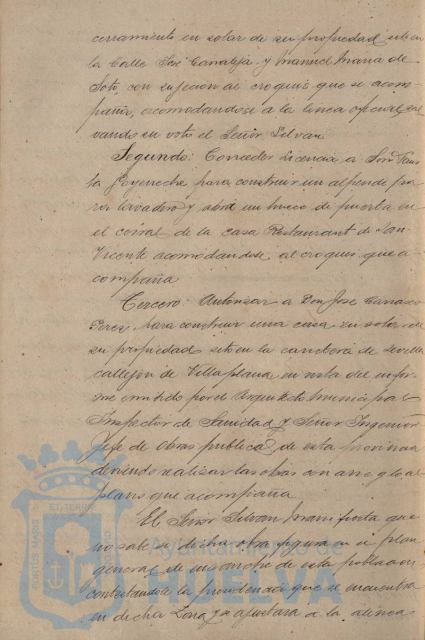 cerramiento en solar de su propiedad sito en
la Calle José Canaleja y Manuel María de
Soto, con sujecion al croquis que se acom-
paña, acomodandose a la linea oficial, sal
vando su voto el Señor Silvan.
Segundo: Conceder licencia a Don
Goyeneche para construir un alpende pa
ra lavadero y abrir un hueco de puerta en
el corral de la casa Restaurant de San
Vicente acomodandose al croquis que a
compaña
Tercero: Autorizar a Don José Carrasco
Perez para construir una casa en solar de
su propiedad sito en la carretera de Sevilla
callejon de Villaplana en vista del infor
me emitido por el Arquitecto municipal
Inspector de Sanidad y Señor Ingeniero
Jefe de obras publicas de esta provincia
deviendo realizar las obras con arreglo al
plano que acompaña.
El Señor Silvan manifiesta que
no sabe si dicha obra figura en el plan
general de ensanche de esta poblacion
contestandole la presidencia que se encuentra
en dicha zona y se ajustara a la alinea
Ayuntamiento de
HUELVA
PORTUS MARIS
ET TERRE
CUSTODIO